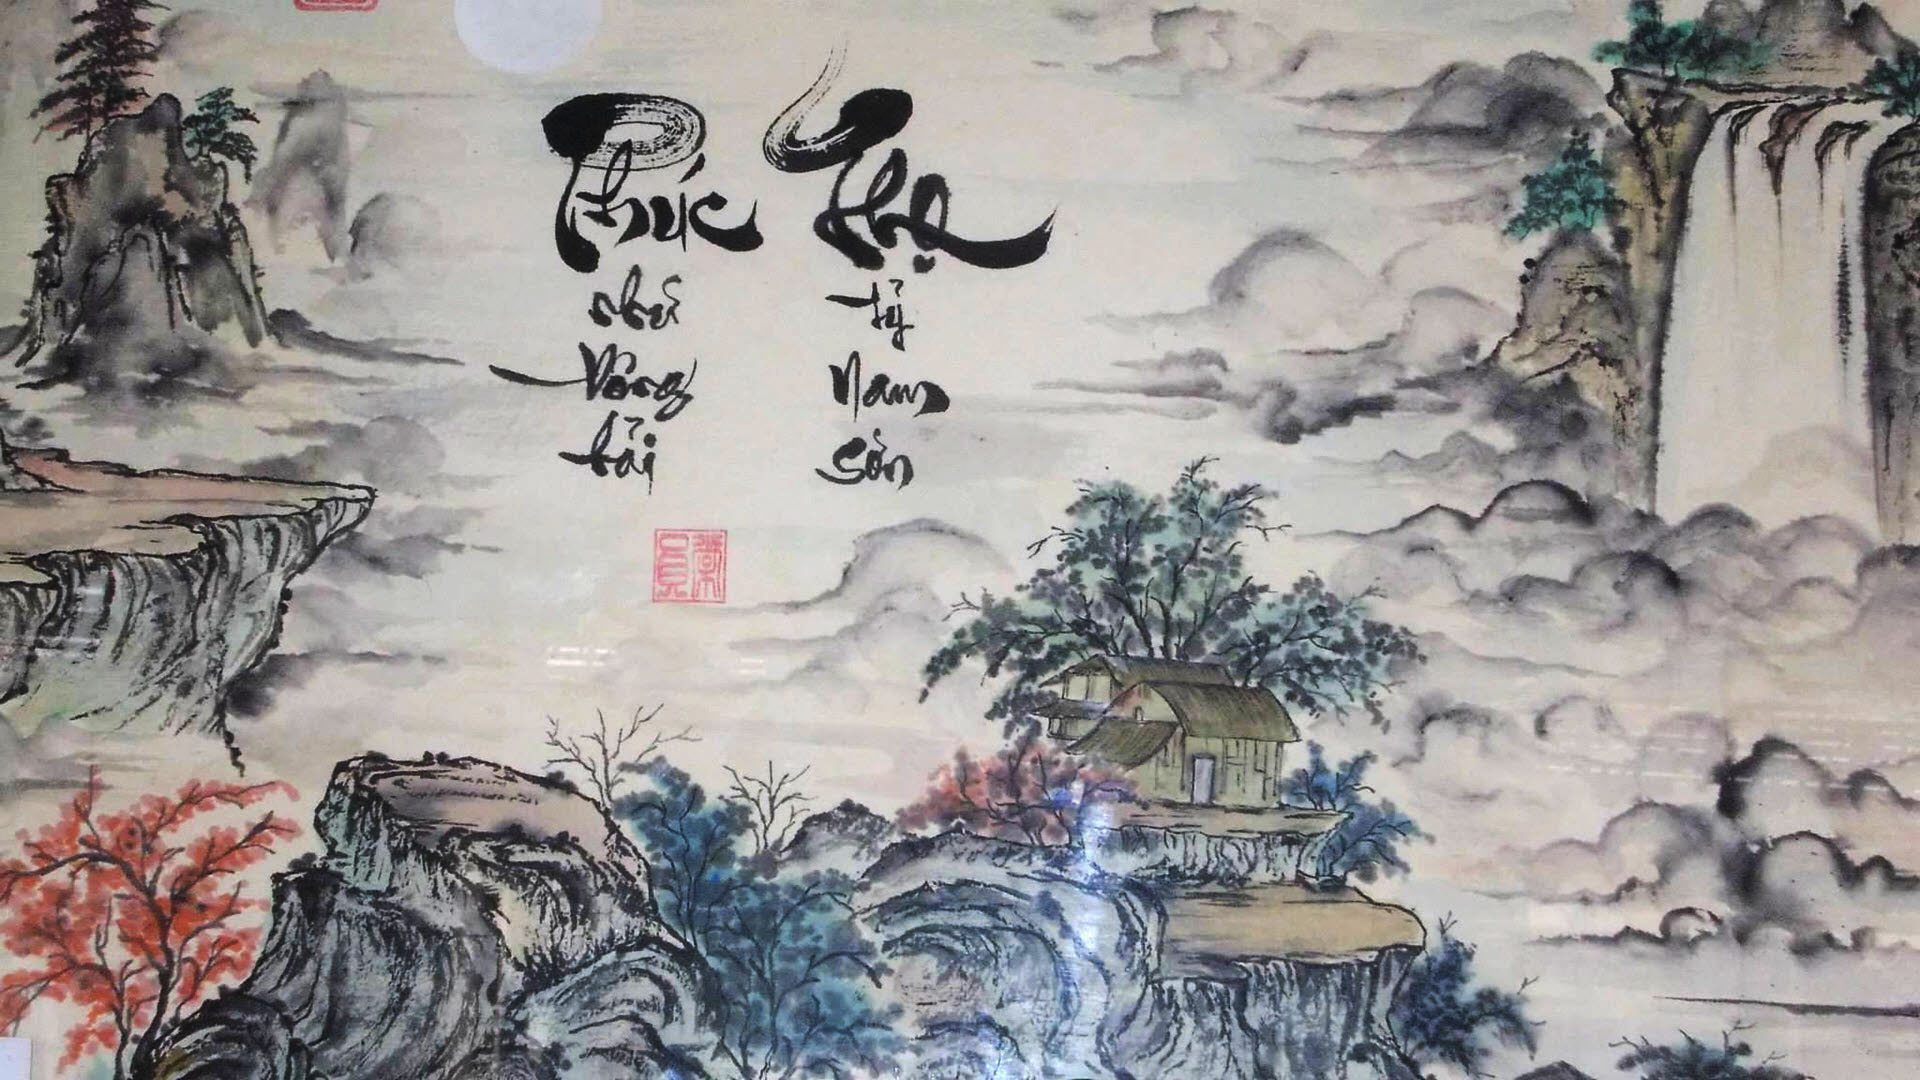 Phúc như Đông hải
Thọ tỷ Nam Sơn